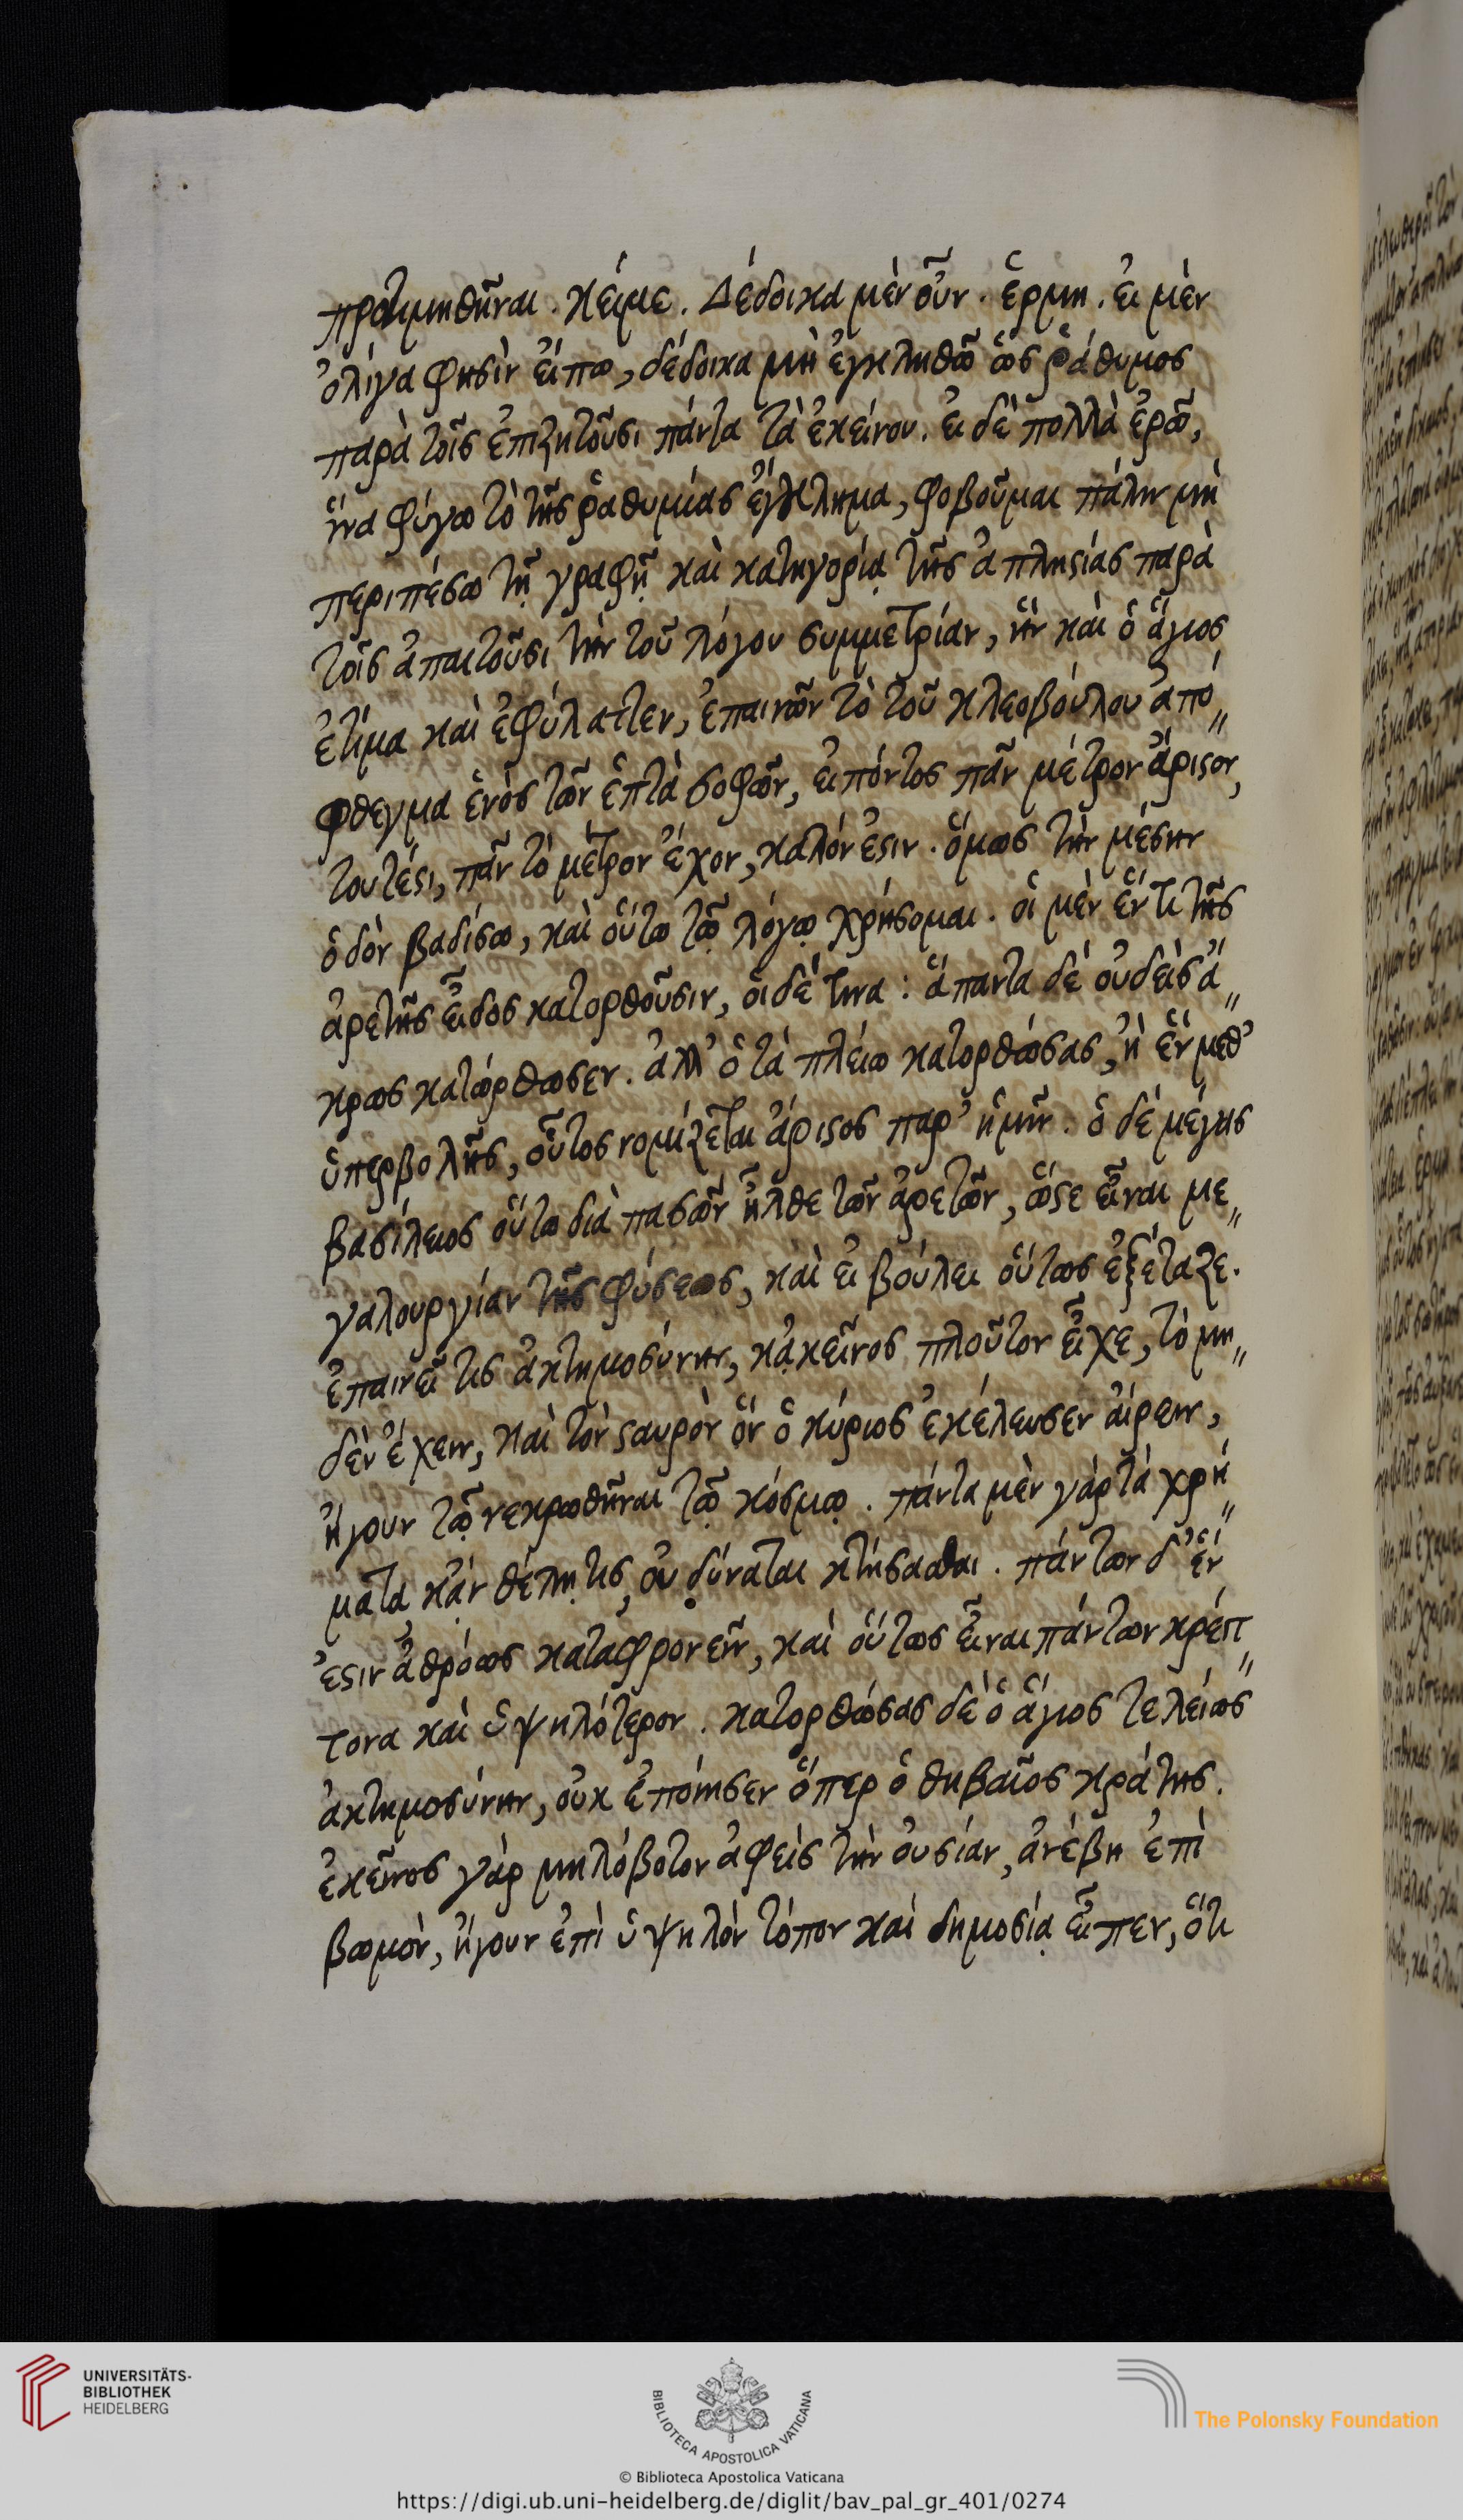 προτιμηθῆναι. κείμε. Δέδοικα μὲν οὖν. ἑρμη. εἰ μὲν
ὀλίγα φησὶν εἴπω, δέδοικα μὴ ἐγκληθῶ ὡς ῥάθυμος
παρὰ τοῖς ἐπιζητοῦσι πάντα τὰ ἐκείνου. εἰ δὲ πολλὰ ἐρῶ,
ἵνα φύγω τὸ τῆς ῥαθυμίας ἔγκλημα, φοβοῦμαι πάλιν μὴ
περιπέσω τῇ γραφῇ καὶ κατηγορίᾳ τῆς ἀπληστίας παρὰ
τοῖς ἀπαιτοῦσι τὴν τοῦ λόγου συμμετρίαν, ἣν καὶ ὁ ἅγιος
ἐτίμα καὶ ἐφύλαττεν, ἐπαινῶν τὸ τοῦ κλεοβούλου ἀπό„
φθεγμα ἑνὸς τῶν ἑπτὰ σοφῶν, εἰπόντος πᾶν μέτρον ἄριστον,
τουτέστι, πᾶν τὸ μέτρον ἔχον, καλόν ἐστιν. ὅμως τὴν μέσην
ὁδὸν βαδίσω, καὶ οὕτω τῷ λόγῳ χρήσομαι. οἱ μὲν ἕν τι τῆς
ἀρετῆς εἶδος κατορθοῦσιν, οἱ δέ τινα: ἅπαντα δὲ οὐδεὶς ἄ„
κρως κατώρθωσεν. ἀλλ' ὁ τὰ πλείω κατορθώσας, ἢ ἓν μεθ'
ὑπερβολῆς, οὗτος νομίζεται ἄριστος παρ' ἡμῖν. ὁ δὲ μέγας
βασίλειος οὕτω διὰ πασῶν ἦλθε τῶν ἀρετῶν, ὥστε εἶναι με„
γαλουργίαν τῆς φύσεως, καὶ εἰ βούλει οὕτως ἐξέταζε.
ἐπαινεῖ τις ἀκτημοσύνην, κᾀκεῖνος πλοῦτον εἶχε, τὸ μη„
δὲν ἔχειν, καὶ τὸν σταυρὸν ὃν ὁ κύριος ἐκέλευσεν αἴρειν,
ἤγουν τῷ νεκρωθῆναι τῷ κόσμῳ. πάντα μὲν γὰρ τὰ χρή„
ματα, κᾂν θέλῃ τις, οὐ δύναται κτήσασθαι. πάντων δ' ἕν
ἐστιν ἀθρόως καταφρονεῖν, καὶ οὕτως εἶναι πάντων κρείτ„
τονα καὶ ὑψηλότερον. κατορθώσας δὲ ὁ ἅγιος τελείως
ἀκτημοσύνην, οὐκ ἐποίησεν ὅπερ ὁ θηβαῖος κράτης.
ἐκεῖνος γὰρ μηλόβοτον ἀφεὶς τὴν οὐσίαν, ἀνέβη ἐπὶ
βωμὸν, ἤγουν ἐπὶ ὑψηλὸν τόπον καὶ δημοσίᾳ εἶπεν, ὅτι
UNIVERSITÄTS-
BIBLIOTHEK
HEIDELBERG
BIBLIOTECA APOSTOLICA VATICANA
The Polonsky Foundation
© Biblioteca Apostolica Vaticana
https://digi.ub.uni-heidelberg.de/diglit/bav_pal_gr_401/0274